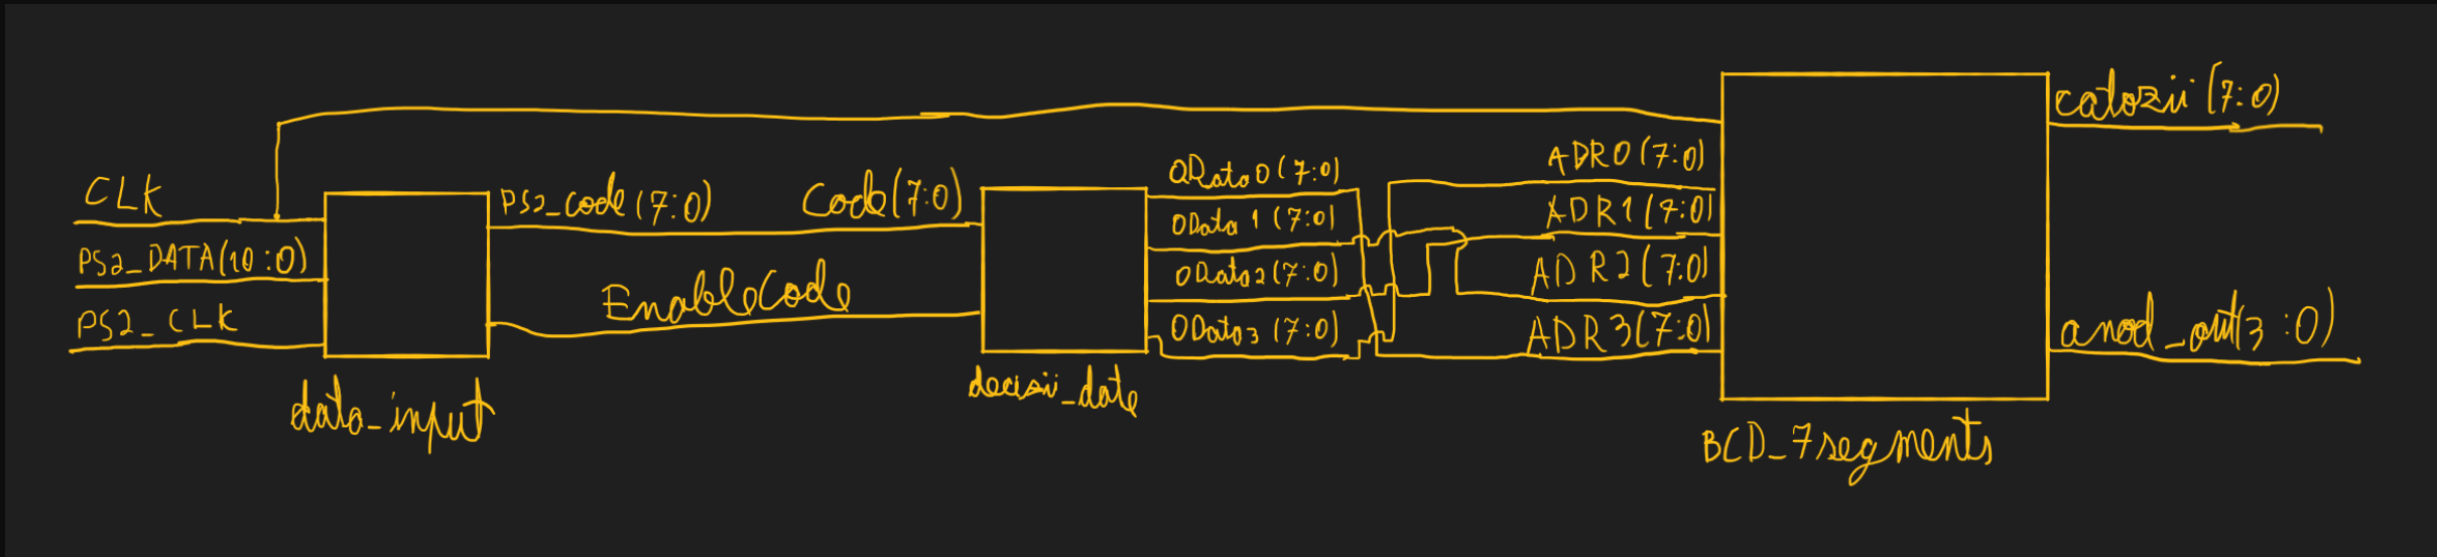 CLK
PS2_DATA(10:0)
PS2_CLK
data_input
PS2_code(7:0)
Code(7:0)
EnableCode
decisii_date
OData0(7:0)
OData1(7:0)
OData2(7:0)
OData3(7:0)
ADR0(7:0)
ADR1(7:0)
ADR2(7:0)
ADR3(7:0)
BCD_7segments
catozii(7:0)
anod_out(3:0)